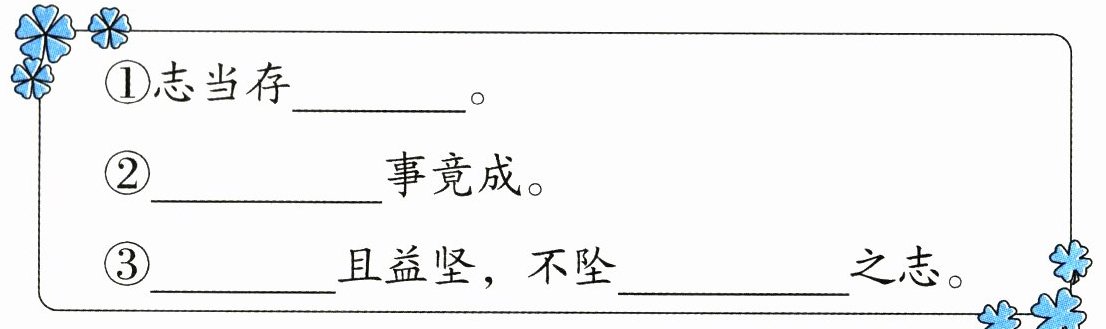 ①志当存________。
②________事竟成。
③________且益坚，不坠________之志。